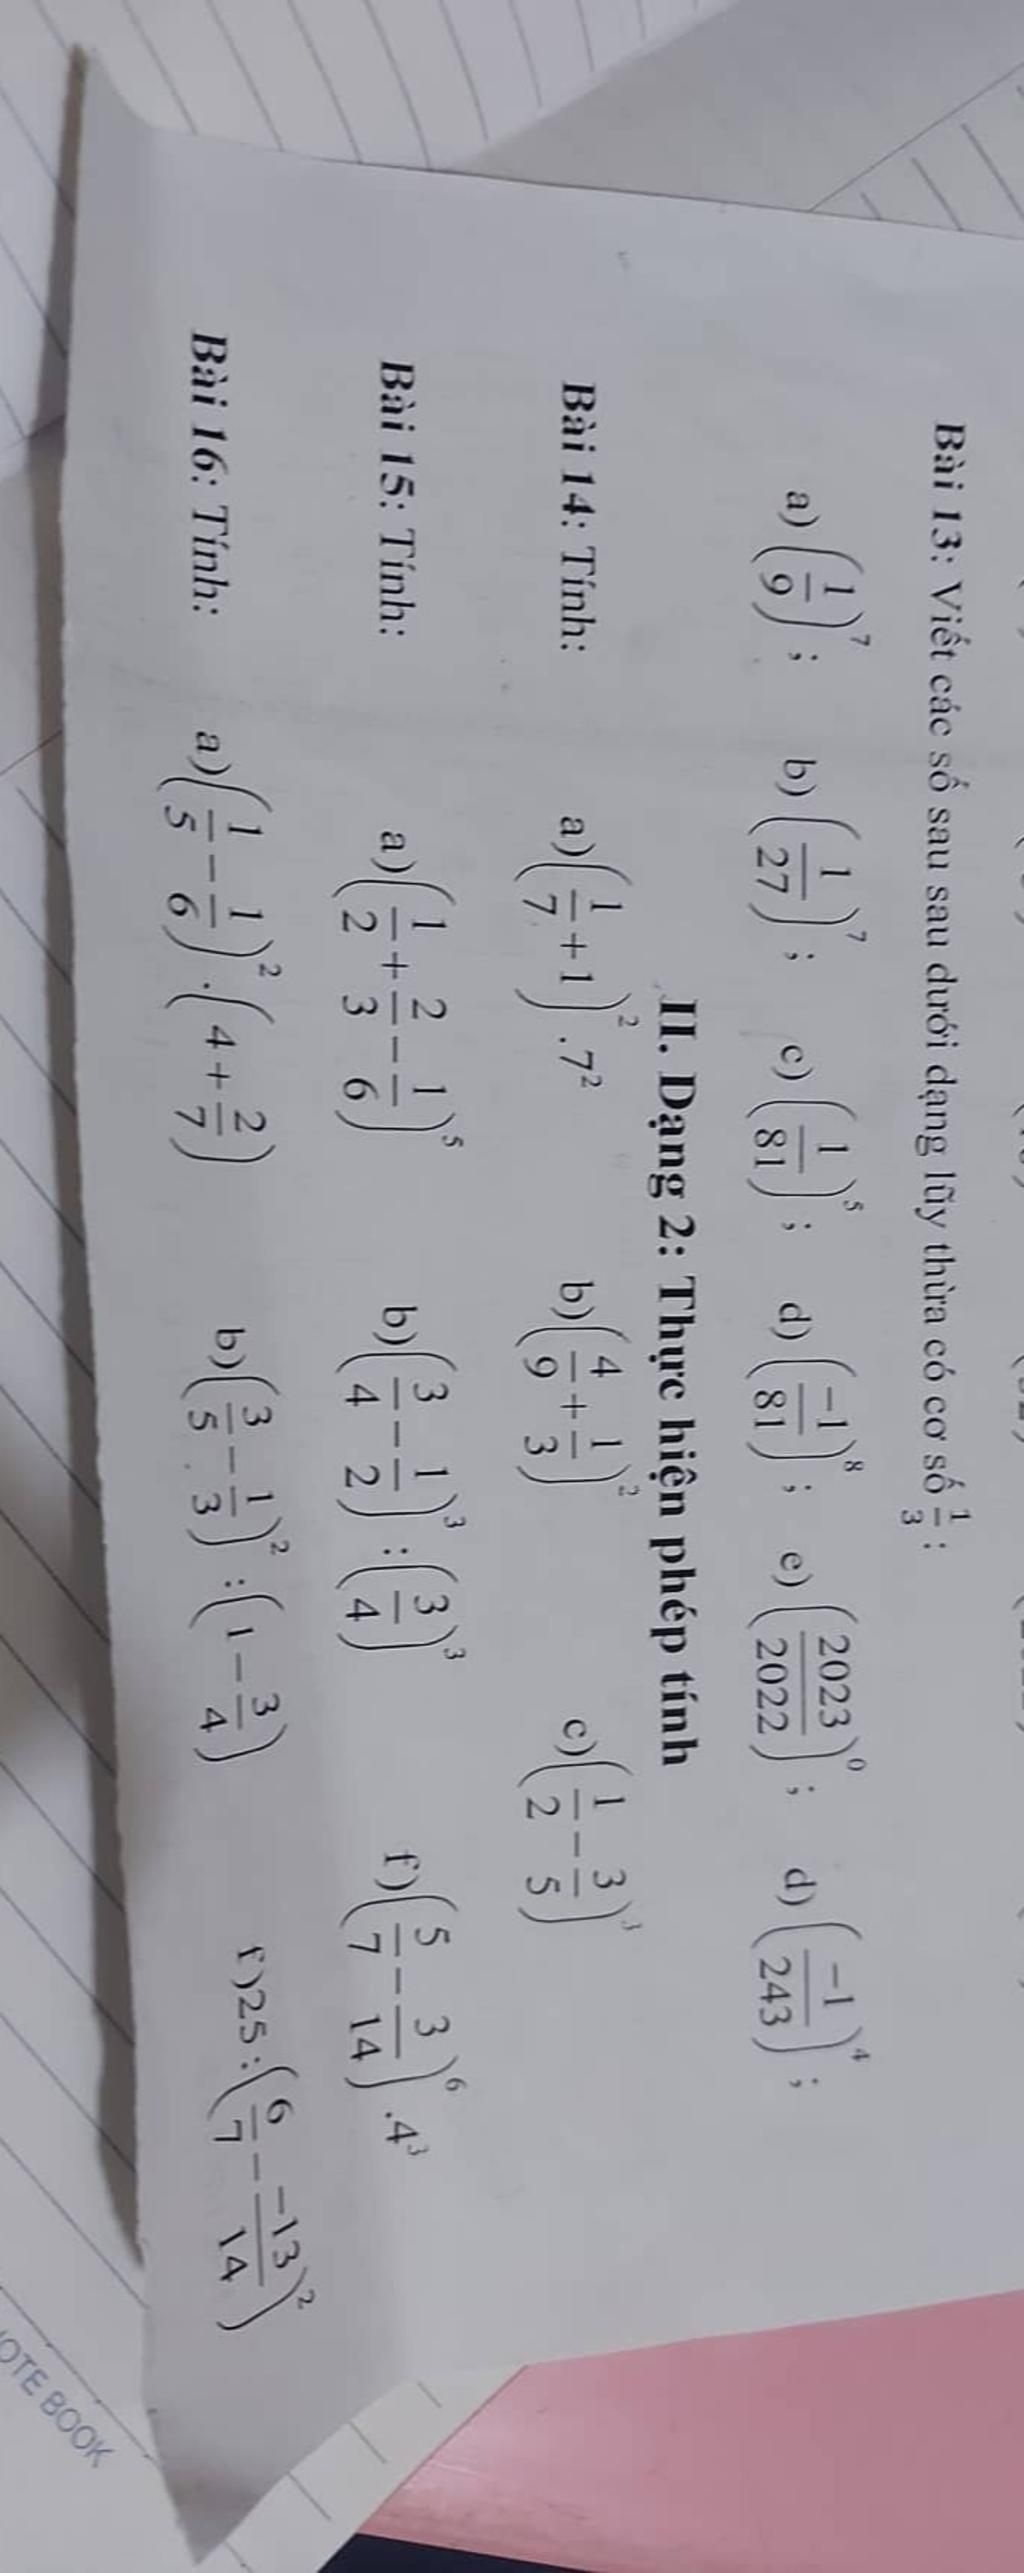 Bài 13: Viết các số sau sau dưới dạng lũy thừa có cơ số 1/3 :
a) (1/9)^7 ; b) (1/27)^7 ; c) (1/81)^5 ; d) (-1/81)^8 ; e) (2023/2022)^0 ; d) (-1/243)^4 ;
II. Dạng 2: Thực hiện phép tính
Bài 14: Tính: a) (1/7 + 1)^2 . 7^2 b) (4/9 + 1/3)^2 c) (1/2 - 3/5)^3
Bài 15: Tính: a) (1/2 + 2/3 - 1/6)^5 b) (3/4 - 1/2)^3 : (3/4)^3 f) (5/7 - 3/14)^6 . 4^3
Bài 16: Tính: a) (1/5 - 1/6)^2 . (4 + 2/7) b) (3/5 - 1/3)^2 : (1 - 3/4) f) 25 : (6/7 - -13/14)^2
OTE BOOK